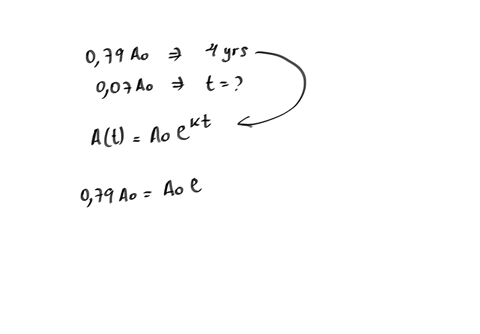 0,79 A₀ ⇒ 4 yrs
0,07 A₀ ⇒ t = ?
A(t) = A₀ e^kt
0,79 A₀ = A₀ e